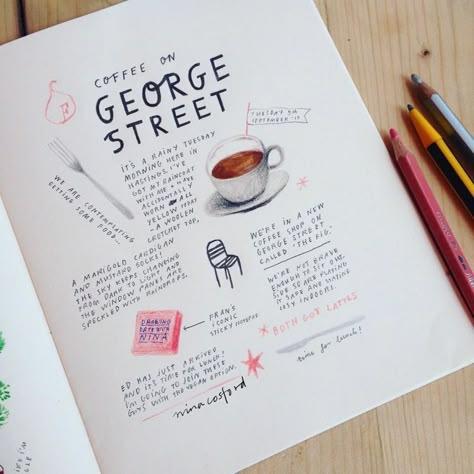 COFFEE ON
GEORGE
STREET
TUESDAY 5TH
SEPTEMBER
IT'S A RAINY TUESDAY
MORNING HERE IN
HASTINGS. I'VE
GOT MY RAINCOAT
WITH ME + HAVE
ACCIDENTALLY
WORN ALL
YELLOW TODAY
- A WOOLEN
CROTCHET TOP,
WE ARE CONTEMPLATING
GETTING SOME FOOD...
A MARIGOLD CARDIGAN
AND MUSTARD SOCKS!
THE SKY KEEPS CHANGING
FROM DARK TO LIGHT AND
THE WINDOW PANES ARE
SPECKLED WITH RAINDROPS.
WE'RE IN A NEW
COFFEE SHOP ON
GEORGE STREET
CALLED 'THE FIG'.
WE'RE NOT BRAVE
ENOUGH TO SIT OUT
SIDE SO ARE PLAYING
IT SAFE AND STAYING
COSY INDOORS.
* BOTH GOT LATTES
time for lunch!
DRAWING
DATE WITH
NINA
FRAN'S
ICONIC
STICKY NOTEPAD
ED HAS JUST ARRIVED
AND IT'S TIME FOR LUNCH!
I'M GOING TO JOIN THESE
GUYS WITH THE VEGAN OPTION.
nina cosford